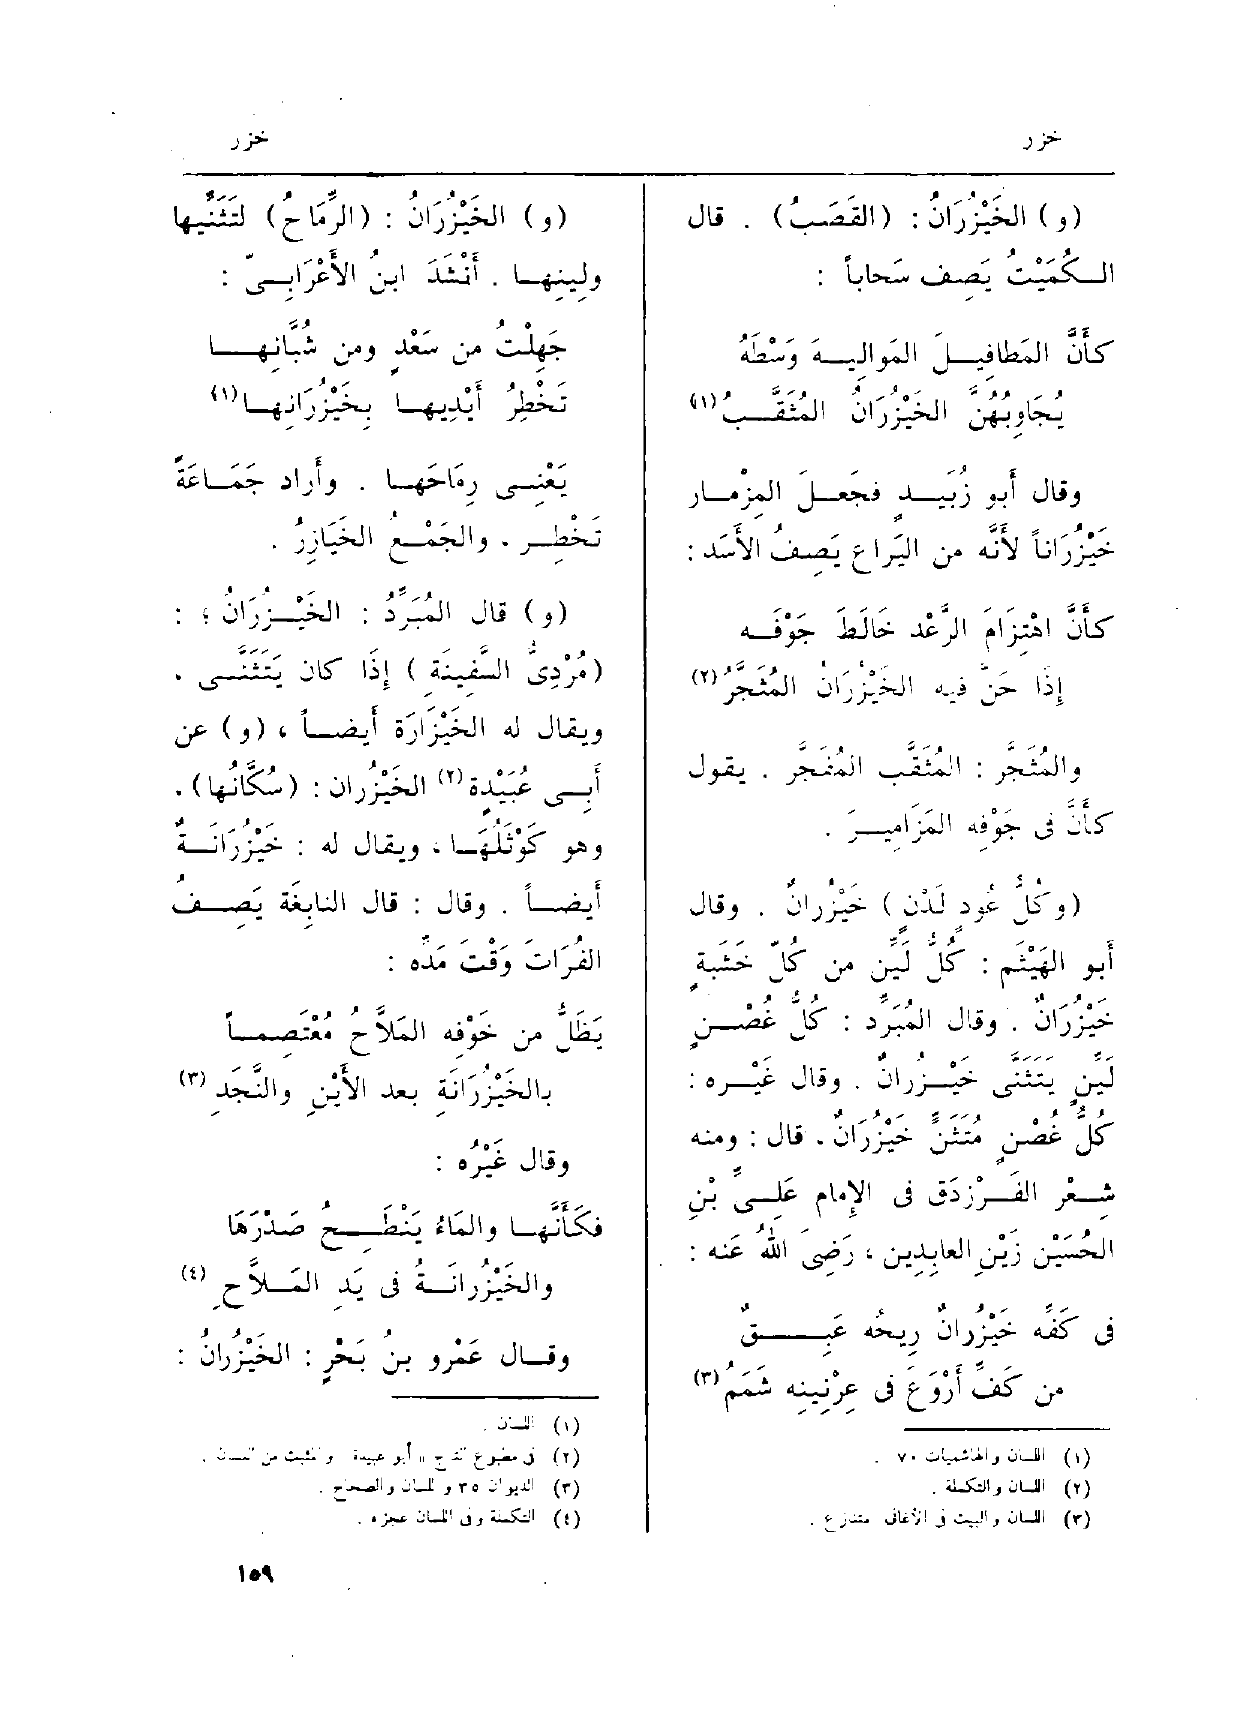 خزر
خزر
(و) الخَيْزُرَانُ : (القَصَبُ) . قال
الكُمَيْتُ يَصِف سَحاباً :
كأَنَّ المَطافِيلَ المَوالِيهَ وَسْطَهُ
يُجَاوِبُهُنَّ الخَيْزُرَانُ المُثَقَّبُ(١)
وقال أَبو زُبَيْدٍ فجَعلَ المِزْمار
خَيْزُرَاناً لأَنَّه من اليَراعِ يَصِفُ الأَسَد :
كأَنَّ اهْتِزَامَ الرَّعْد خَالَطَ جَوْفَه
إِذَا حَنَّ فيه الخَيْزُرَانُ المُثَجَّرُ(٢)
والمُثَجَّر : المُثَقَّب المُفَجَّر . يقول
كأَنَّ فى جَوْفِه المَزامِيرَ .
(وكُلُّ عُودٍ لَدْنٍ ) خَيْزُرانٌ . وقال
أَبو الهَيْثَمِ : كُلُّ لَيِّنٍ من كُلِّ خَشَبةٍ
خَيْزُرَانٌ . وقال المُبَرِّد : كُلُّ غُصْنٍ
لَيِّنٍ يتَثَنَّى خَيْزُرانٌ . وقال غَيْره :
كُلُّ غُصْنٍ مُتَثَنٍّ خَيْزُرَانٌ . قال : ومنه
شِعْر الفَرَزْدَق فى الإِمَام عَلِىِّ بْنِ
الحُسَيْن زَيْنِ العابِدِين ، رَضِىَ اللهُ عَنه :
فى كَفِّه خَيْزُرانٌ رِيحُه عَبِقٌ
من كَفِّ أَرْوَعَ فى عِرْنِينِه شَمَمُ(٣)
(١) اللسان والهاشميات ٧٠ .
(٢) اللسان والتكملة .
(٣) اللسان والبيت فى الأغانى متنازع .
(و) الخَيْزُرَانُ : (الرِّمَاحُ) لتَثَنِّيها
ولِينِها . أَنْشَدَ ابنُ الأَعْرَابِىّ :
جَهِلْتُ من سَعْدٍ ومن شُبَّانِها
تَخْطِرُ أَيْدِيها بِخَيْزُرَانِها(١)
يَعْنِى رِمَاحَها . وأَراد جَمَاعَةً
تَخْطِر . والجَمْعُ الخَيَازِرُ .
(و) قال المُبَرِّدُ : الخَيْزُرَانُ ؛ :
(مُرْدِىُّ السَّفِينَةِ ) إِذَا كان يَتَثَنَّى .
ويقال له الخَيْزَارَة أَيضاً ، (و) عن
أَبِى عُبَيْدة(٢) الخَيْزُران : (سُكَّانُها) .
وهو كَوْثَلُهَا ، ويقال له : خَيْزُرَانَةٌ
أَيضاً . وقال : قال النابِغَة يَصِفُ
الفُرَاتَ وَقْتَ مَدِّه :
يَظَلُّ من خَوْفِه المَلاَّحُ مُعْتَصِماً
بالخَيْزُرَانَةِ بعد الأَيْنِ والنَّجَدِ (٣)
وقال غَيْرُه :
فكأَنَّها والماءُ يَنْطِحُ صَدْرَها
والخَيْزُرانَةُ فى يَدِ المَلاَّحِ (٤)
وقال عَمْرو بنُ بَحْرٍ : الخَيْزُرانُ :
(١) اللسان .
(٢) فى مطبوع التاج « أبو عبيدة والمثبت من اللسان .
(٣) الديوان ٣٥ واللسان والصحاح .
(٤) التكملة وفى اللسان عجزه .
١٥٩